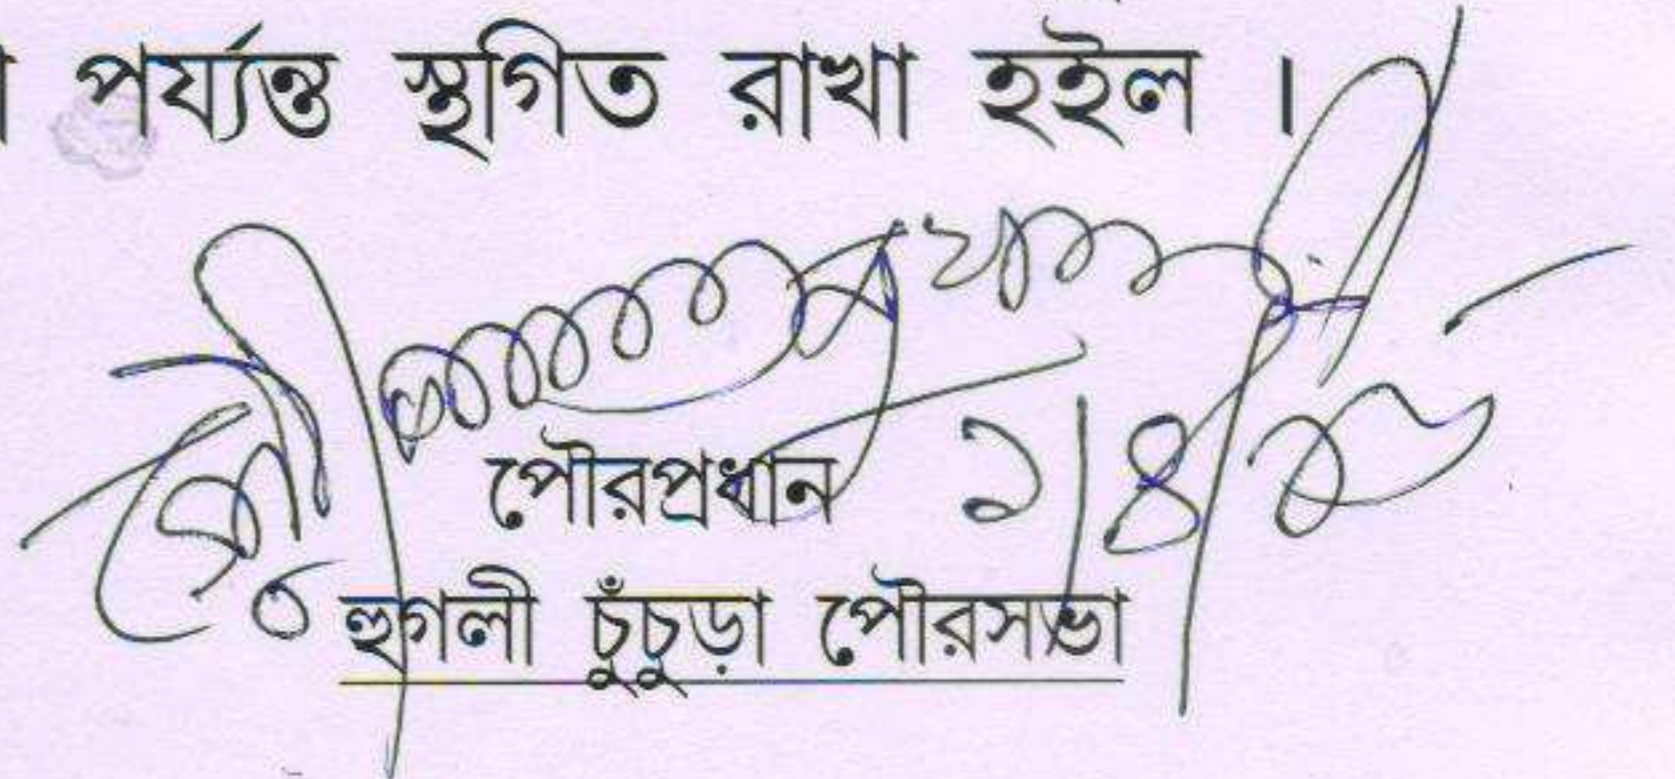 পর্য্যন্ত স্থগিত রাখা হইল ।
পৌরপ্রধান
হুগলী চুঁচুড়া পৌরসভা